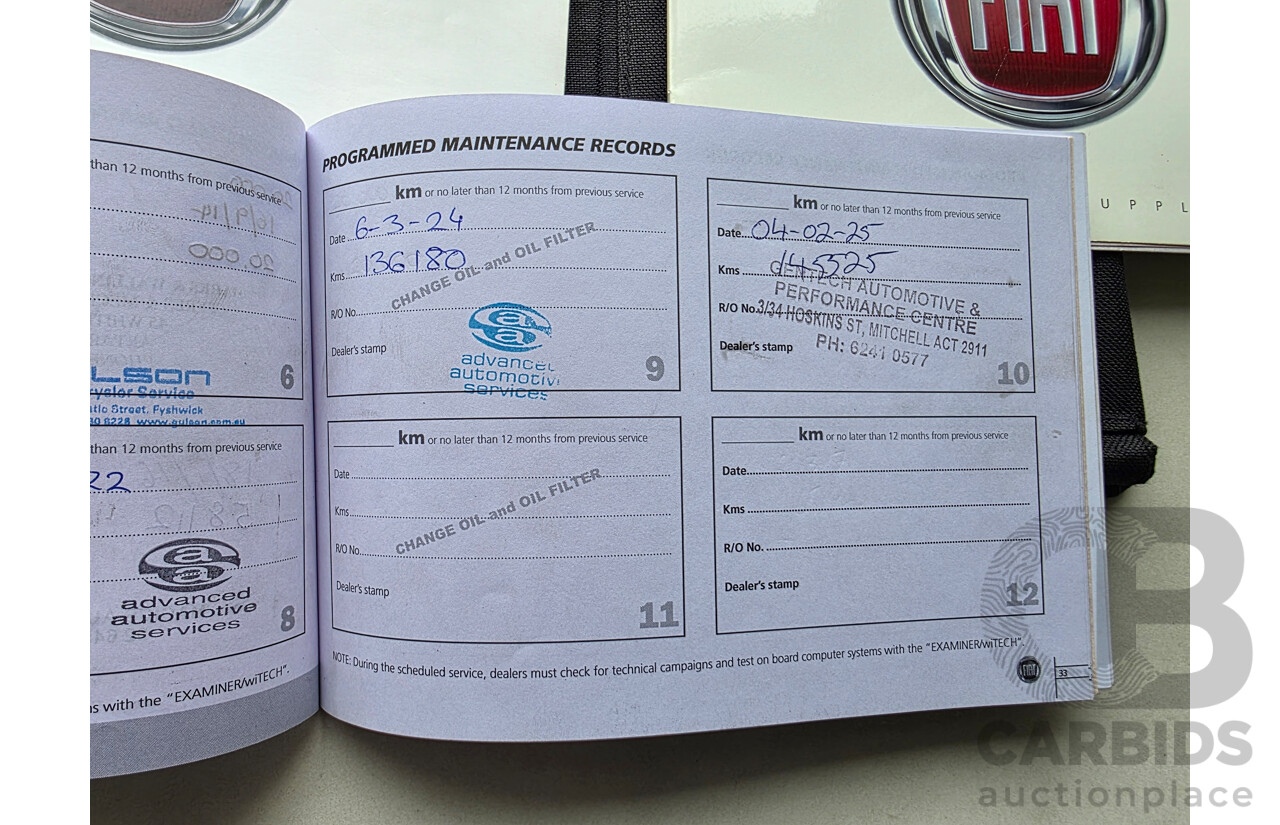 FIAT
U P P L
than 12 months from previous service
LSON
rysler Service
Street, Fyshwick
www.gulson.com.au
6
than 12 months from previous service
22
advanced
automotive
services
8
ns with the "EXAMINER/wiTECH".
PROGRAMMED MAINTENANCE RECORDS
km or no later than 12 months from previous service
Date 6-3-24
Kms 136180
CHANGE OIL and OIL FILTER
R/O No.
Dealer's stamp
advanced
automotiv
services
9
km or no later than 12 months from previous service
Date 04-02-25
Kms 145525
GENTECH AUTOMOTIVE &
PERFORMANCE CENTRE
R/O No.
3/34 HOSKINS ST, MITCHELL ACT 2911
Dealer's stamp
PH: 6241 0577
10
km or no later than 12 months from previous service
Date
Kms
CHANGE OIL and OIL FILTER
R/O No.
Dealer's stamp
11
km or no later than 12 months from previous service
Date
Kms
R/O No.
Dealer's stamp
12
NOTE: During the scheduled service, dealers must check for technical campaigns and test on board computer systems with the "EXAMINER/wiTECH".
FIAT
33
CARBIDS
auctionplace